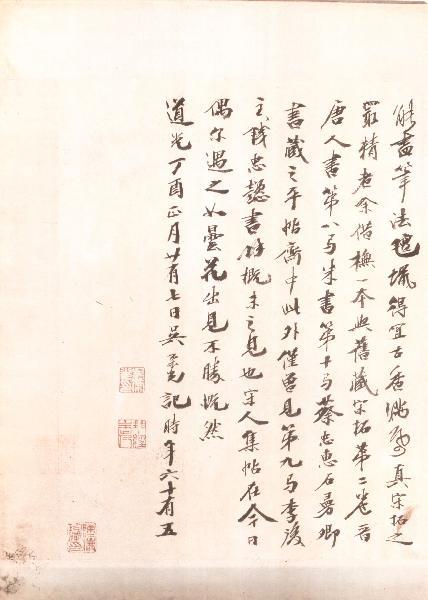 能盡筆法氊蠟得宜古香真宋拓之
最精者余借橅一本與舊藏宋拓第二卷晉
唐人書第八為米書第十為蔡忠惠石曼卿
書藏之平帖齋中此外僅曾見第九為李後
主錢忠懿書餘概未之見也宋人集帖在今日
偶尔遇之如曇花出見不勝慨然
道光丁酉正月廿有七日吳榮光記時年六十有五